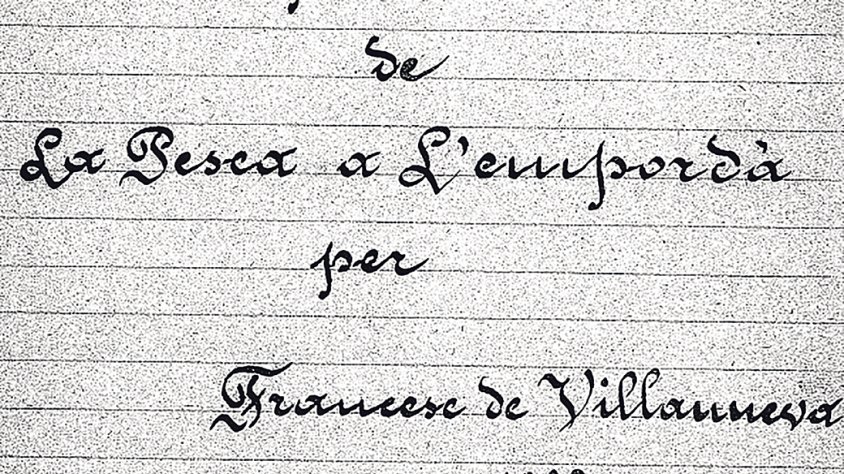 de
La Pesca a L'empordà
per
Francesc de Villanueva